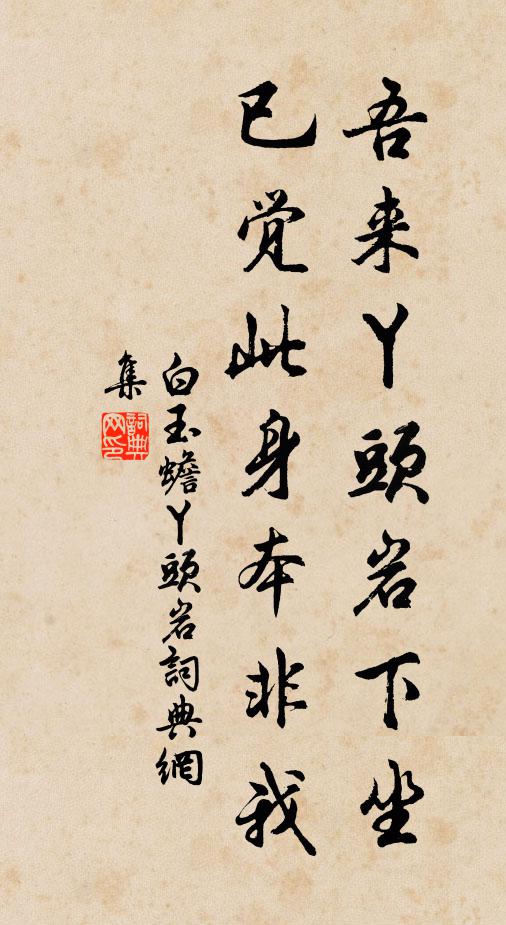 吾来丫頭岩下坐
已覚此身本非我
白玉蟾丫頭岩詞典網
集
詞典
网印